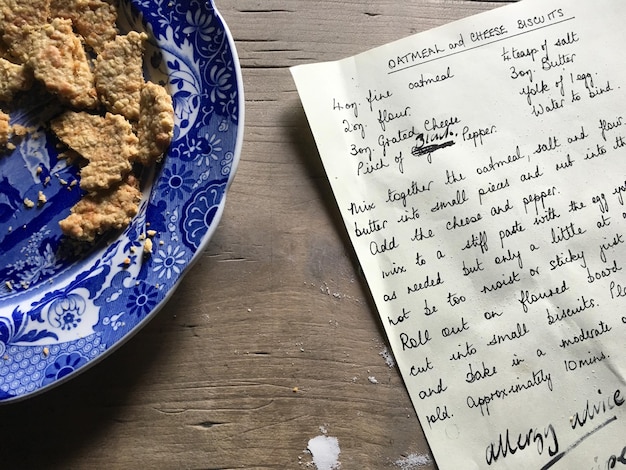 OATMEAL and CHEESE BISCUITS
4oz fine oatmeal
2oz flour.
3oz. Grated Cheese
Pinch of Pepper.
¼ teasp of salt
3oz. Butter
Yolk of 1 egg.
Water to bind.
Mix together the oatmeal, salt and flour.
butter into small pieces and rub into th
Add the cheese and pepper.
mix to a stiff paste with the egg yo
as needed but only a little at a
not be too moist or sticky just
Roll out on floured board
cut into small biscuits. Pla
and bake in a moderate o
Approximately 10mins.
Allergy advice